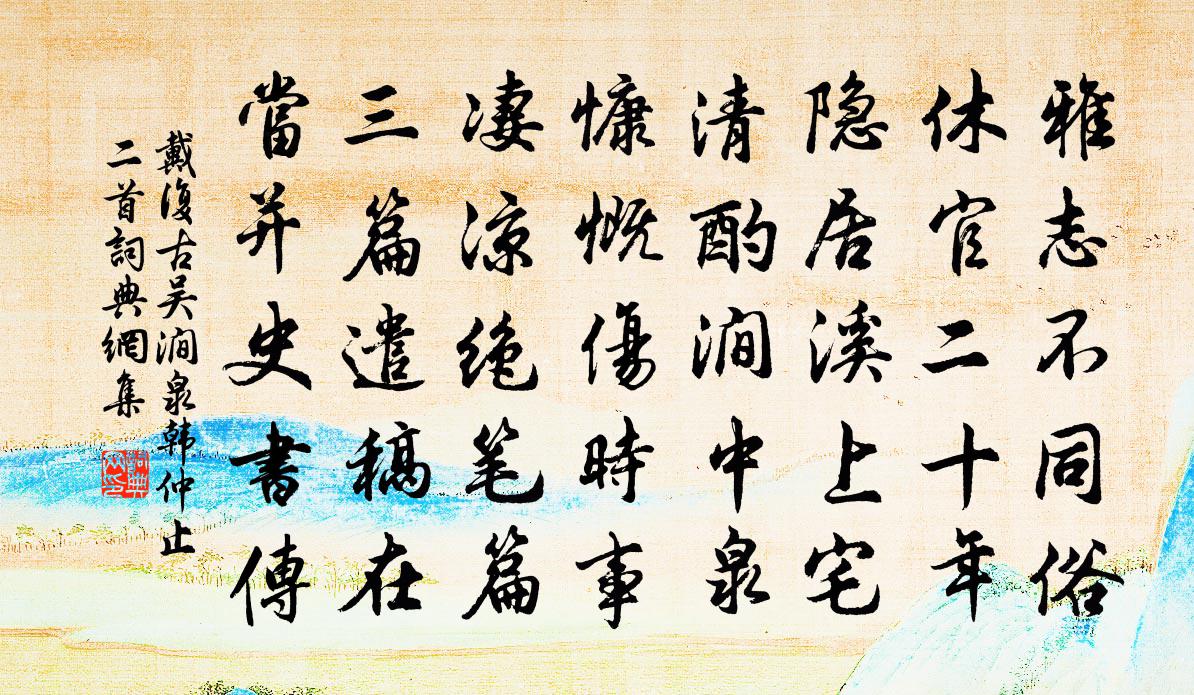 雅志不同俗
休官二十年
隐居溪上宅
清酌澗中泉
慷慨傷時事
凄涼绝笔篇
三篇遣稿在
當并史書傳
戴復古吴澗泉韩仲止
二首詞典網集